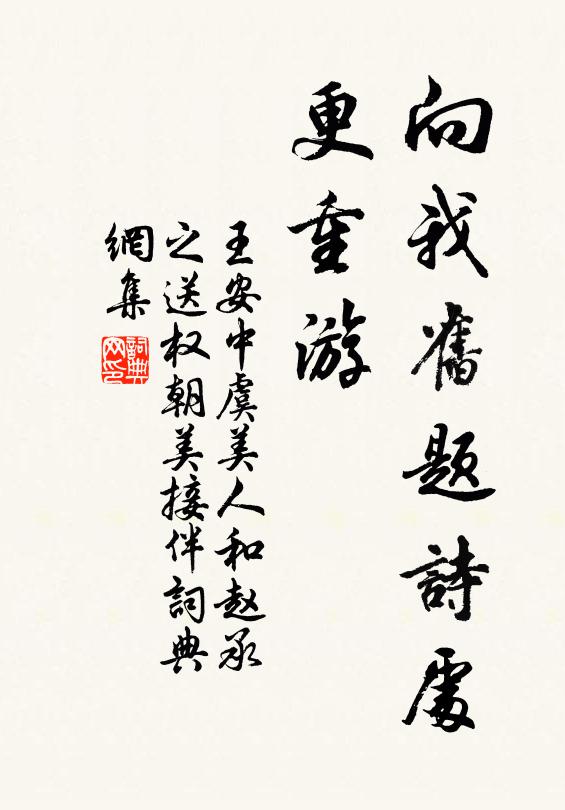 向我舊题詩處
更重游
王安中虞美人和赵承
之送权朝美接伴詞典
網集
詞典
网印